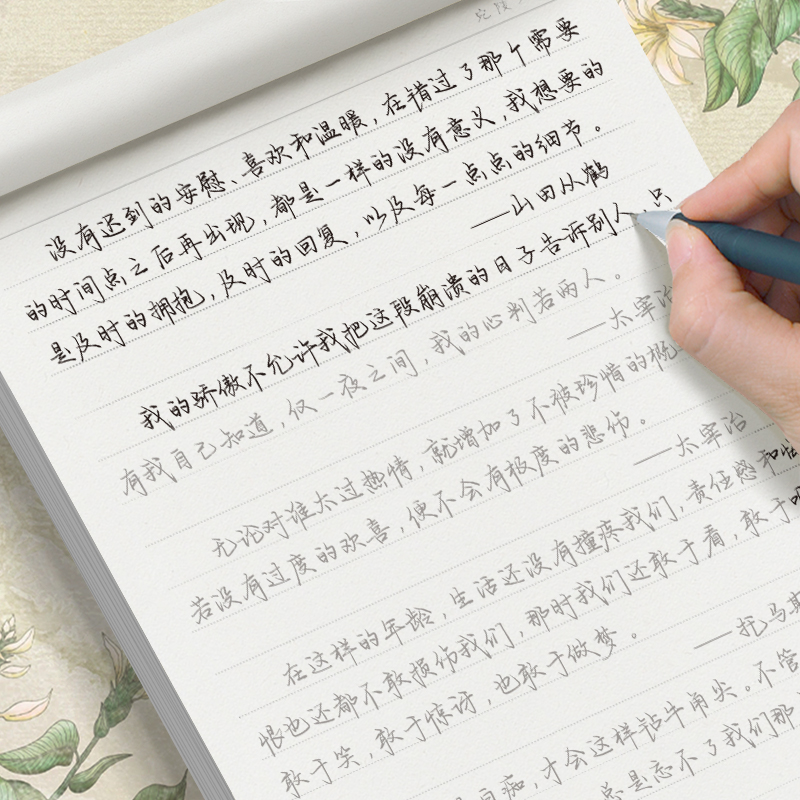 没有迟到的安慰、喜欢和温暖，在错过了那个需要
的时间点之后再出现，都是一样的没有意义，我想要的
是及时的拥抱，及时的回复，以及每一点点的细节。
——山田从鹤
我的骄傲不允许我把这段崩溃的日子告诉别人，只
有我自己知道，仅一夜之间，我的心判若两人。
——太宰治
无论对谁太过热情，就增加了不被珍惜的概
若没有过度的欢喜，便不会有极度的悲伤。
——太宰治
在这样的年龄，生活还没有撞疼我们，责任感和怯
恨也还都不敢损伤我们，那时我们还敢于看，敢于听
敢于笑，敢于惊讶，也敢于做梦。
——托马斯
自痴，才会这样钻牛角尖。不管
总是忘不了我们那